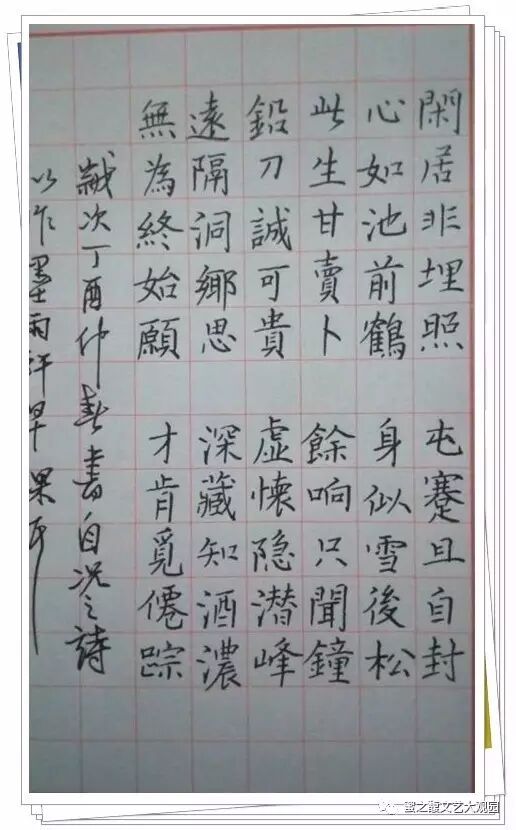 閑居非埋照 屯蹇且自封
心如池前鶴 身似雪後松
此生甘賣卜 餘响只聞鐘
鉛刀誠可貴 虛懷隐潜峰
遠隔洞鄉思 深藏知酒濃
無為終始願 才肯覓僊踪
歲次丁酉仲春書自況之詩
以作墨雨軒早果
蜜之霞文艺大观园